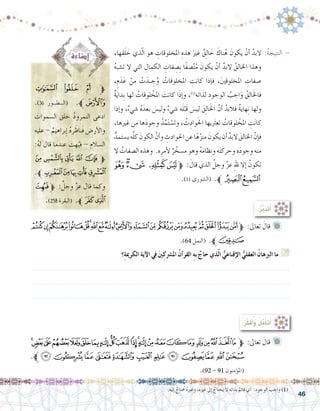 إضاءة
- النتيجة: لابدَّ أنْ يكونَ هناك خالقٌ غيرُ هذه المخلوقات هو الذي خلقها،
وهذا الخالقُ لابدَّ أنْ يكونَ متّصفًا بصفات الكمال التي لا تشبهُ
صفات المخلوقين، فإذا كانت المخلوقاتُ وُجدتْ من عَدَمٍ،
فالخالقُ واجبُ الوجود لذاته(1)، وإذا كانت المخلوقاتُ لها بدايةٌ
ولها نهايةٌ فلابدَّ أنَّ الخالق ليس قبله شيءٌ وليس بعدهُ شيءٌ، وإذا
كانت المخلوقاتُ تعتريها الحوادثُ، وتستمدُّ وجودها من غيرها،
فإنَّ الخالقَ لابدَّ أنْ يكونَ منزّهًا عن الحوادث وأنَّ الكونَ كلَّه يستمدُّ
منه وجوده وحركته ونظامهُ وهو مسخّرٌ لأمره. وهذه الصفاتُ لا
تكونُ إلّا لله عزّ وجلّ الذي قال: ﴿لَيْسَ كَمِثْلِهِ شَيْءٌ وَهُوَ
السَّمِيعُ الْبَصِيرُ﴾. (الشورى 11).
﴿أَمْ خَلَقُوا السَّمَاوَاتِ
وَالْأَرْضَ﴾. (الطور 36).
ادعى النمرودُ خلق السموات
والأرض فناظرهُ إبراهيمُ – عليه
السلام – فبُهت عندما قال لهُ:
﴿فَإِنَّ اللَّهَ يَأْتِي بِالشَّمْسِ مِنَ
الْمَشْرِقِ فَأْتِ بِهَا مِنَ الْمَغْرِبِ﴾
وكما قال عزّ وجلّ: ﴿فَبُهِتَ
الَّذِي كَفَرَ﴾. (البقرة 258).
قال تعالى: ﴿أَمَّنْ يَبْدَأُ الْخَلْقَ ثُمَّ يُعِيدُهُ وَمَنْ يَرْزُقُكُمْ مِنَ السَّمَاءِ وَالْأَرْضِ أَإِلَهٌ مَعَ اللَّهِ قُلْ هَاتُوا بُرْهَانَكُمْ إِنْ كُنْتُمْ
صَادِقِينَ﴾. (النمل 64).
ما البرهانُ العقليُّ الإقناعيُّ الذي حاجَّ به القرآنُ المشركين في الآية الكريمة؟
قال تعالى: ﴿مَا اتَّخَذَ اللَّهُ مِنْ وَلَدٍ وَمَا كَانَ مَعَهُ مِنْ إِلَهٍ إِذًا لَذَهَبَ كُلُّ إِلَهٍ بِمَا خَلَقَ وَلَعَلَا بَعْضُهُمْ عَلَى بَعْضٍ
سُبْحَانَ اللَّهِ عَمَّا يَصِفُونَ ۝ عَالِمِ الْغَيْبِ وَالشَّهَادَةِ فَتَعَالَى عَمَّا يُشْرِكُونَ ۝﴾.
(المؤمنون 91 – 92).
(1) واجب الوجود: أي قائمٌ بذاته لا يحتاج إلى غيره، وغيره محتاج إليه.
46